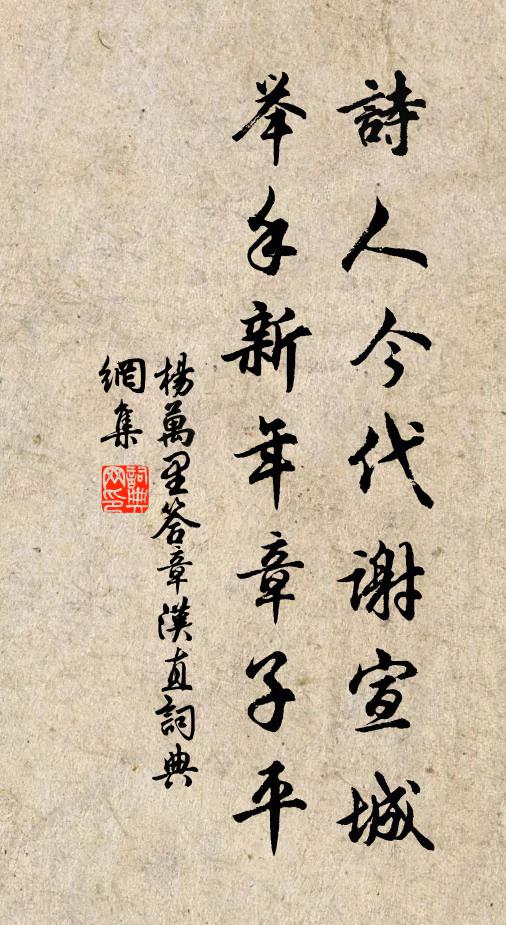 詩人今代謝宣城
举手新年章子平
楊萬里答章漢直詞典
網集
詞典
网印